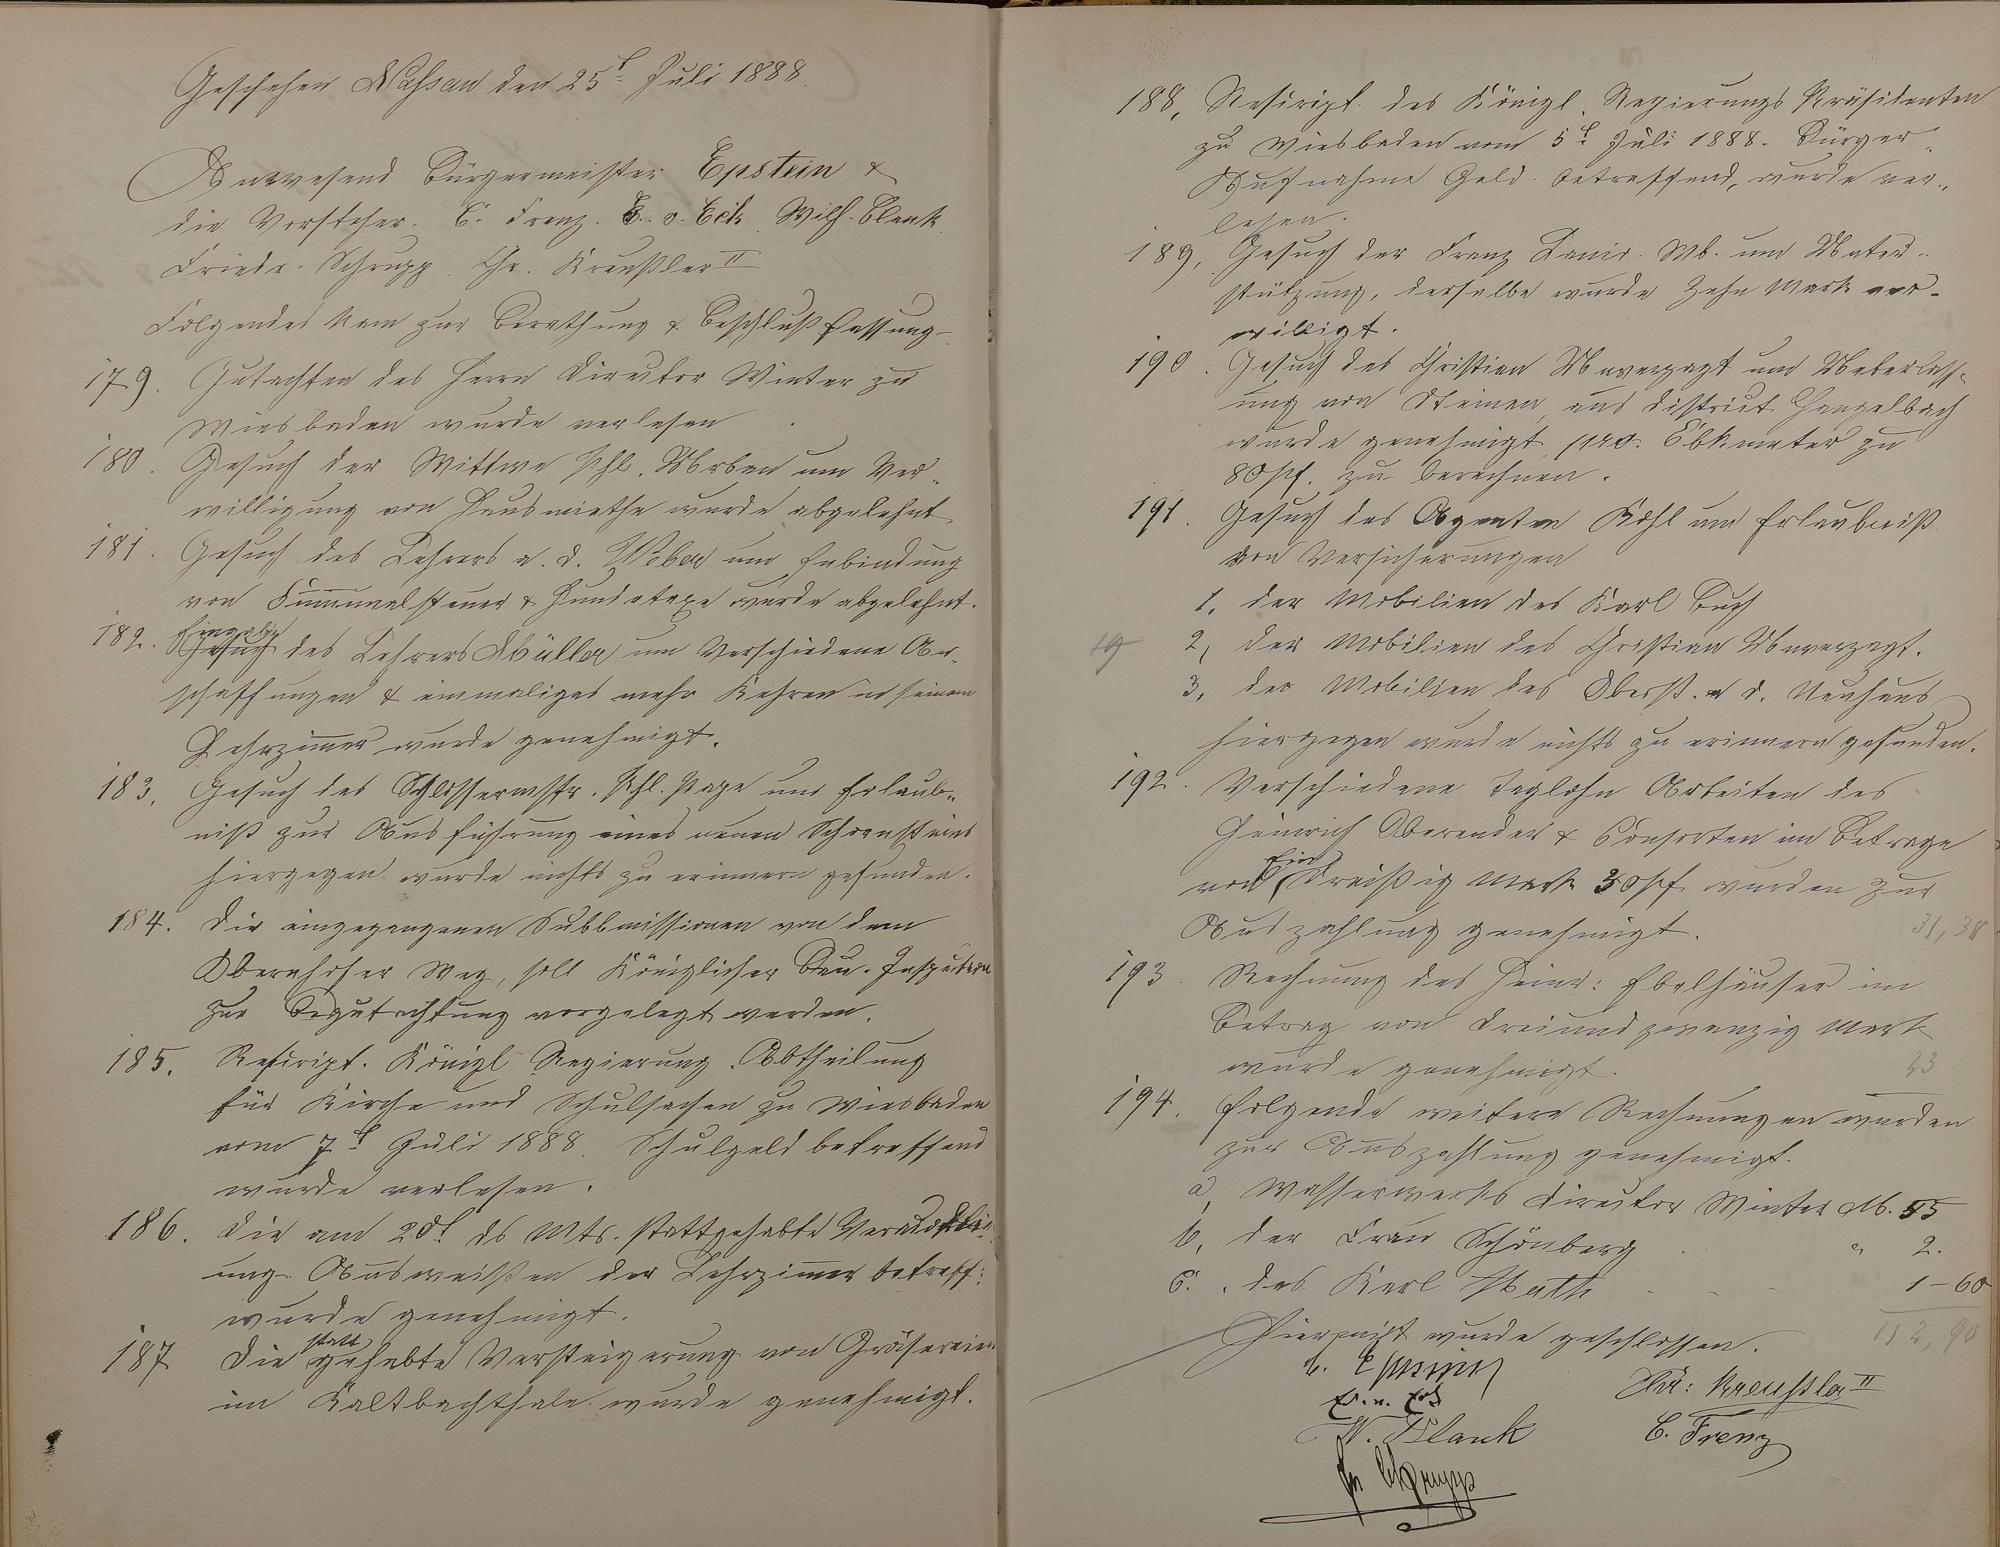 Geschehen Nassau den 25t. Juli 1888.
Anwesend Bürgermeister Epstein &
die Vorsteher. C. Frenz. E. v. Eck. Wilh. Blank.
Friedr. Schrupp. Chr. Kreußler II
Folgendes kam zur Berathung & Beschlußfassung
179. Gutachten des Herrn Director Winter zu
Wiesbaden wurde verlesen
180. Gesuch der Wittwe Phl. Urban um Ver-
willigung von Hausmiethe wurde abgelehnt
181. Gesuch des Lehrers a. d. Weber um Enbindung
von Kummunalsteuer & Hundetaxe wurde abgelehnt.
182. Eingabe
Gesuch des Lehrers Müller um Verschiedene An-
schaffungen & einmaliges mehr Kehren in seinem
Lehrzimmer wurde genehmigt.
183. Gesuch des Schlossermstr. Phl. Pape um Erlaub-
niß zur Ausführung eines neuen Schornsteins
hiergegen wurde nichts zu erinnern gefunden.
184. Die eingegangenen Submissionen von dem
Obernhofer Weg, soll Königlicher Bau-Inspection
zur Begutachtung vorgelegt werden.
185. Rescript. Königl Regierung. Abtheilung
für Kirche und Schulsachen zu Wiesbaden
vom 7t. Juli 1888. Schulgeld betreffend
wurde verlesen.
186. Die am 20t. ds Mts. stattgehabte
ung. Ausweißen der Lehrzimmer betreff:
wurde genehmigt.
187 statt
Die gehabte Versteigerung von Gräsereien
im Kaltbachthale wurde genehmigt.
188, Rescript des Königl. Regierungs Präsidenten
zu Wiesbaden vom 5t. Juli 1888. Bürger-
Aufnahme Geld betreffend, wurde ver-
lesen.
189, Gesuch der Franz Wb. um Unter-
stützung, derselbe wurde Zehn Mark ver-
willigt.
190. Gesuch des Christian Unverzagt um Ueberlass-
ung von Steinen aus District Hangelbach
wurde genehmigt pro. Cbkmeter zu
80 Pf. zu berechnen.
191. Gesuch des Agenten Kohl um Erlaubniß
von Versicherungen
1. der Mobilien des Karl Buch
19 2, der Mobilien des Christian Unverzagt.
3, der Mobilien des Oberst. a d. Neuhaus
hiergegen wurde nichts zu erinnern gefunden.
192. Verschiedene Taglohn Arbeiten des
Heinrich & Consorten im Betrage
Ein
von Dreißig Mark 30 Pf. wurden zur
Auszahlung genehmigt. 31,30
193. Rechnung des Heinr: Ebelhäuser im
Betrag von Dreiundzwanzig Mark
wurde genehmigt. 23
194. Folgende weitere Rechnungen wurden
zur Auszahlung genehmigt.
a, Wasserwerks Director Winter M. 55
b, der Frau Schönberg " 2.
c. des Karl 1-60
112,90
Hiermit wurde geschlossen.
Epstein
E. v. Eck
Chr: Kreußler II
W. Blank
C. Frenz
Fr Schrupp